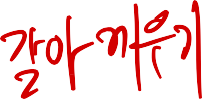 갈아끼우기